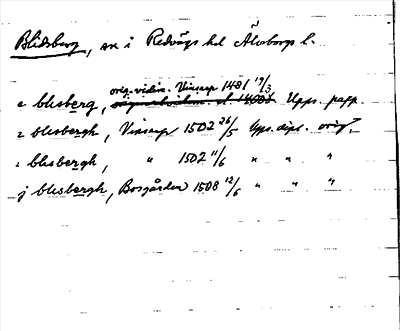 Blidsberg, sn i Redvägs hd Älvsborgs l.
orig.-vidim. Vinsarp 1481 19/3
a blisberg, Upps. papp.
2 blisbergh, Vinsarp 1502 26/5 Upps. dipl. orig.
i blisbergh, " 1502 11/6 " " "
j blisbergh, Bosgården 1508 12/6 " " "